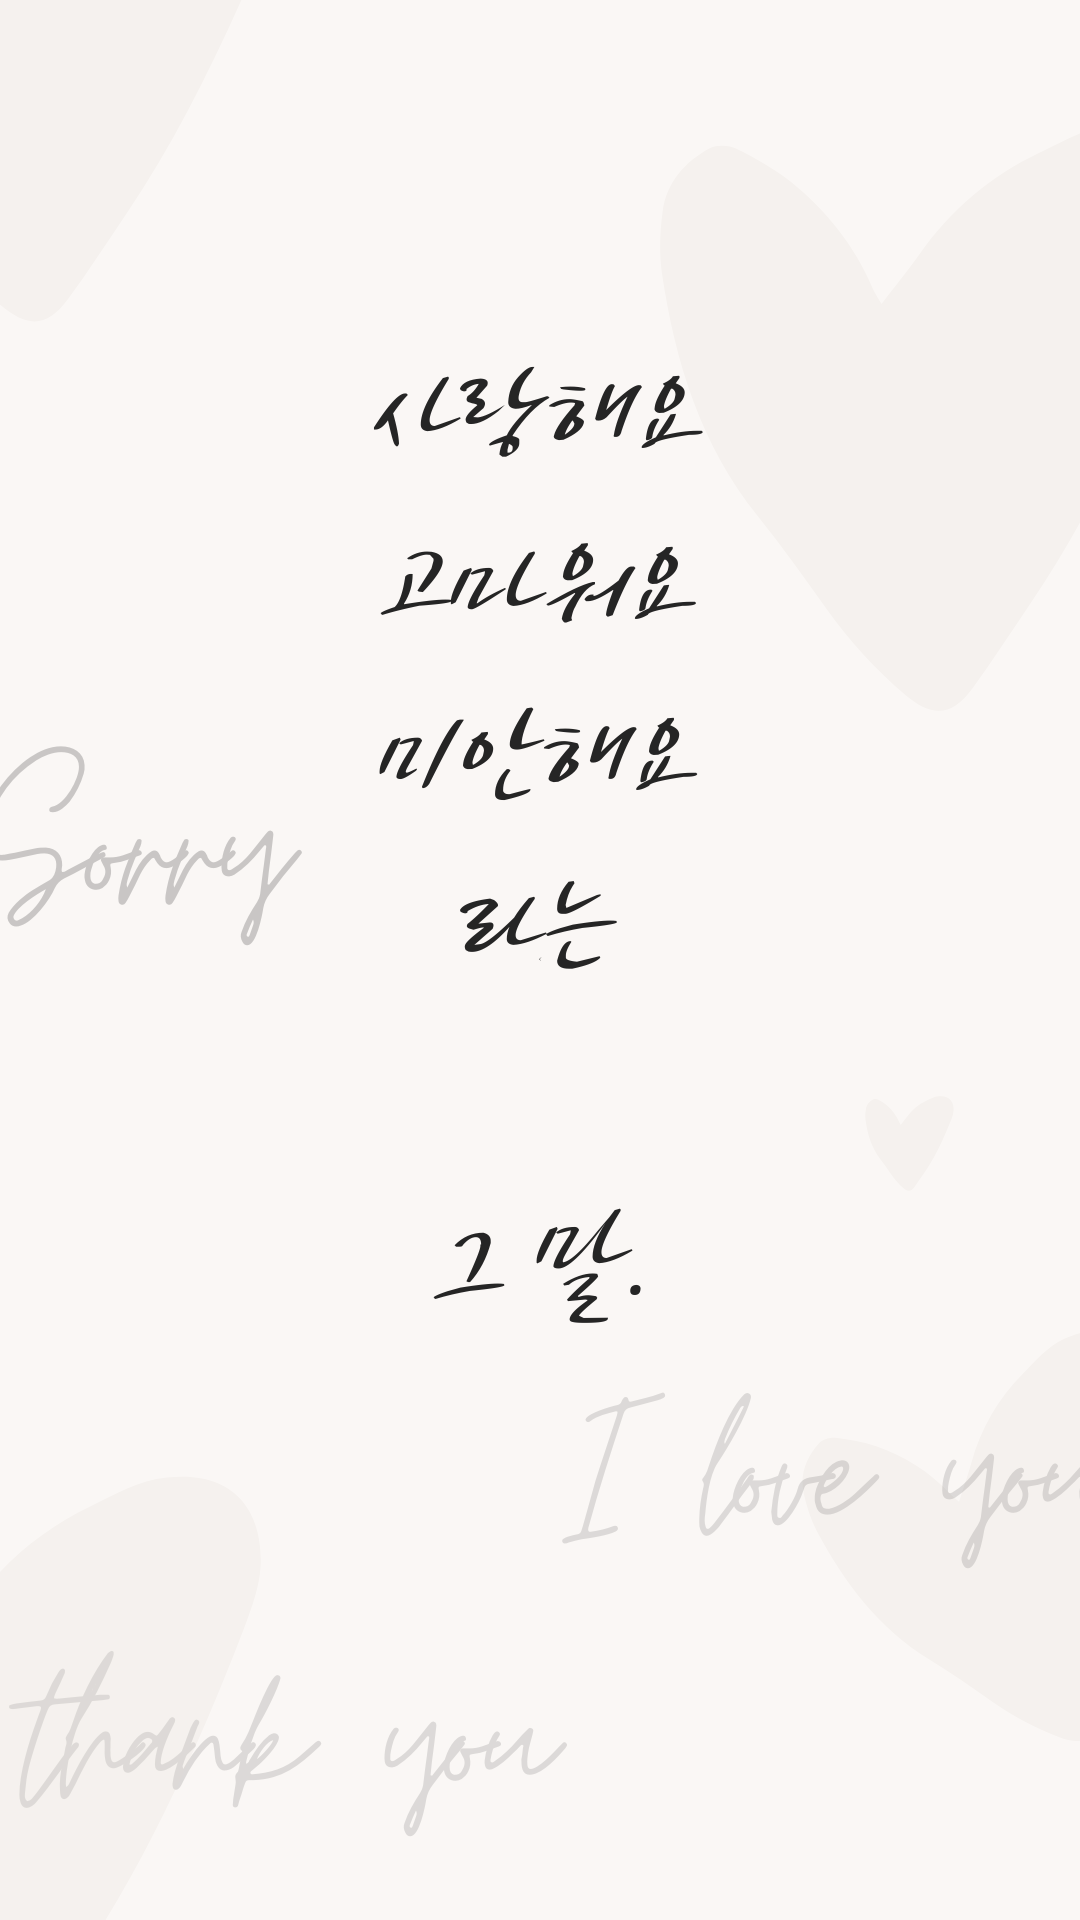 사랑해요
고마워요
미안해요
Sorry
라는
그 말.
I love you
thank you